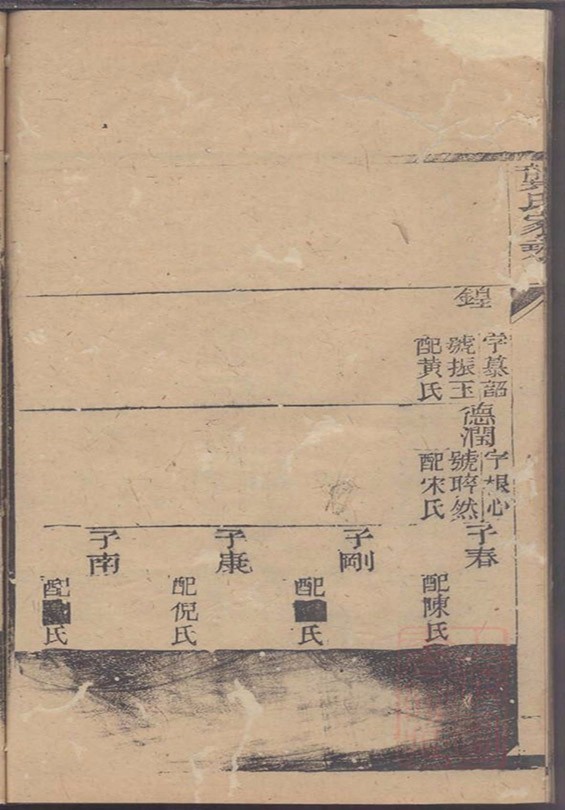 氏家譜
鍠
字慕韶
號振玉
配黃氏
德潤
字根心
號睟然
配宋氏
子春
配陳氏
子剛
配
氏
子康
配倪氏
子南
配
氏